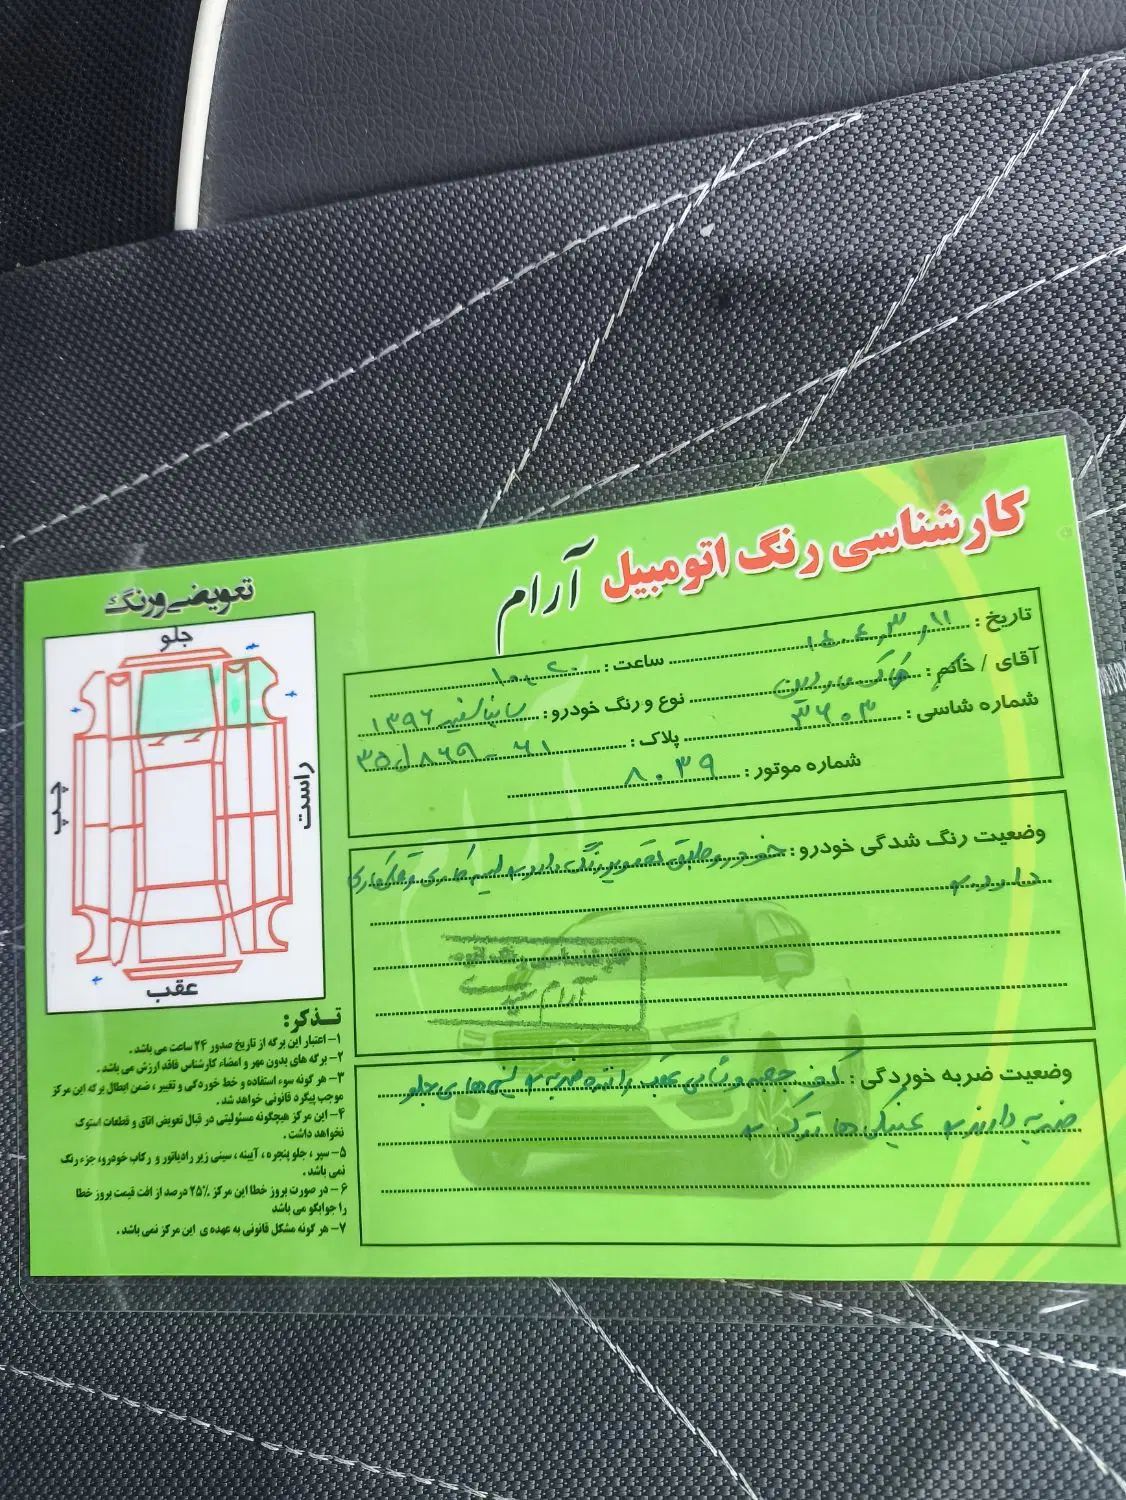 کارشناسی رنگ اتومبیل آرام
تاریخ : ۱۴۰۴٫۳٫۱۱ ساعت : ۱۰٫۲۰
آقای / خانم : نوع و رنگ خودرو : ساینا سفید ۱۳۹۶
شماره شاسی : ۳۶۰۳ پلاک : ۶۱-۸۶۹ل۳۵
شماره موتور : ۸۰۳۹
وضعیت رنگ شدگی خودرو : خودرو طبق تصویر رنگ دارد لیسه کاری و
دارد
آرام
وضعیت ضربه خوردگی : کف جعبه و شاسی عقب راننده ضربه سینی های جلو
ضربه دارند عینکی ها ترک
تعویضی ورنگ
جلو
چپ
راست
عقب
تـذکر:
۱- اعتبار این برگه از تاریخ صدور ۲۴ ساعت می باشد .
۲- برگه های بدون مهر و امضاء کارشناس فاقد ارزش می باشد .
۳- هر گونه سوء استفاده و خط خوردگی و تغییر ، ضمن ابطال برگه این مرکز
موجب پیگرد قانونی خواهد شد .
۴- این مرکز هیچگونه مسئولیتی در قبال تعویض اتاق و قطعات استوک
نخواهد داشت .
۵- سپر ، جلو پنجره ، آیینه ، سینی زیر رادیاتور و رکاب خودرو، جزء رنگ
نمی باشد .
۶- در صورت بروز خطا این مرکز ۲۵٪ درصد از افت قیمت بروز خطا
را جوابگو می باشد
۷- هر گونه مشکل قانونی به عهده ی این مرکز نمی باشد .